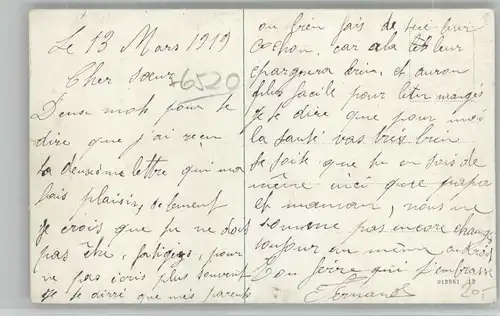 Le 13 Mars 1919
Cher sœur
76520
Deux mots pour te
dire que j'ai reçu
ta deuxième lettre qui ma
fais plaisir,
Je crois que tu ne dois
pas être, fatiguée, pour
ne pas écris plus souvent
Je te dirré que mes parents
ou bien fais de
cochon. car a la
epargnera bien, et auron
plus facile pour
Je te dire que pour moi
la santé vas très bien
Je soite que tu en sois de
même ici que papa
et maman, nous ne
somme pas encore changé
toujour au même androit
Ton frère qui t'embrasse
Fernand
012561
20,-